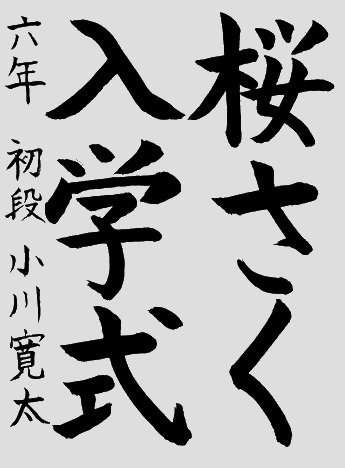 桜さく
入学式
六年 初段 小川寛太